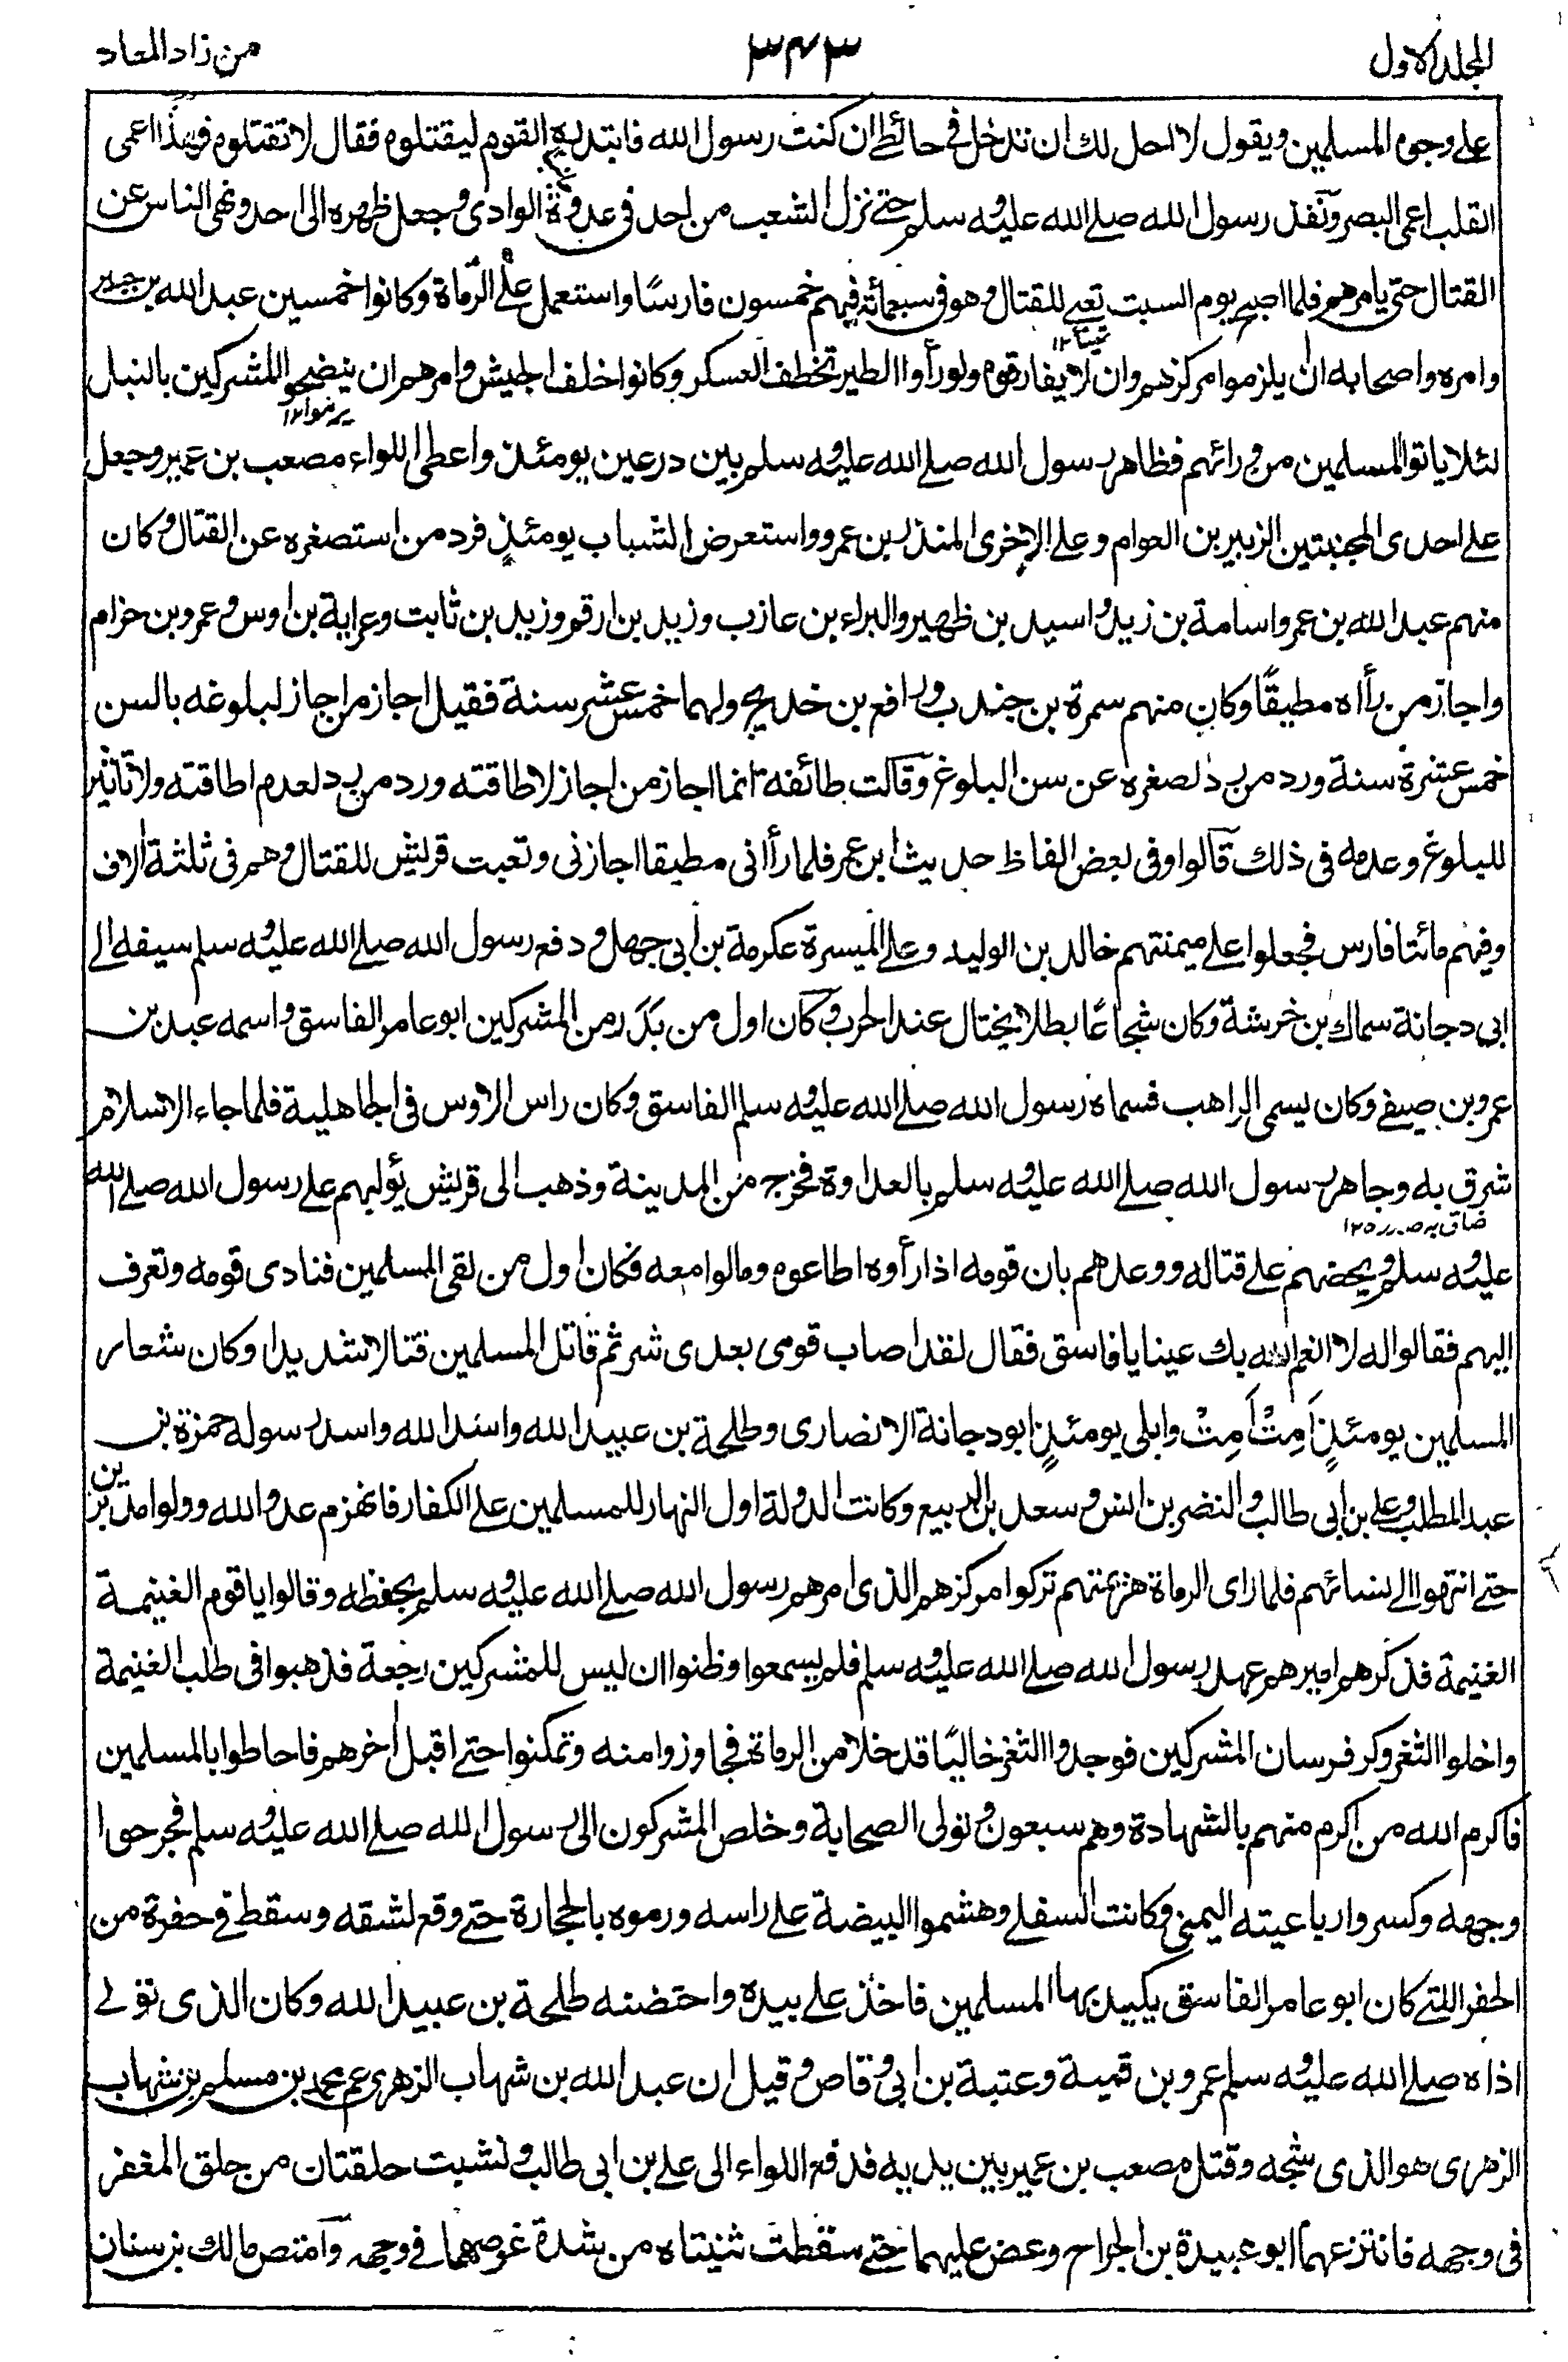 المجلد الاول
٣٤٣
من زاد المعاد
على وجوه المسلمين ويقول لا احل لك ان تدخل في حائطي ان كنت رسول الله فابتدره القوم ليقتلوه فقال لا تقتلوه فهذا اعمى
القلب اعمى البصر ونفذ رسول الله صلے الله عليه وسلم حتے نزل الشعب من احد في عدوة الوادي وجعل ظهره الى احد ونهى الناس عن
القتال حتى يامرهم فلما اصبح يوم السبت تعبے للقتال وهو في سبعمائة فيهم خمسون فارسًا واستعمل علے الرماة وكانوا خمسين عبد الله بن جبير
تهيأ ١٢
وامره واصحابه ان يلزموا مركزهم وان لا يفارقوه ولو رأوا الطير تخطف العسكر وكانوا خلف الجيش وامرهم ان ينضحوا المشركين بالنبل
يرموا ١٢
لئلا ياتوا المسلمين من ورائهم فظاهر رسول الله صلے الله عليه وسلم بين درعين يومئذ واعطى اللواء مصعب بن عمير وجعل
علے احدى المجنبتين الزبير بن العوام وعلے الاخرى المنذر بن عمرو واستعرض الشباب يومئذٍ فرد من استصغره عن القتال وكان
منهم عبد الله بن عمر واسامة بن زيد واسيد بن ظهير والبراء بن عازب وزيد بن ارقم وزيد بن ثابت وعرابة بن اوس وعمرو بن حزام
واجاز من رأاه مطيقًا وكان منهم سمرة بن جندب ورافع بن خديج ولهما خمس عشر سنة فقيل اجاز من اجاز لبلوغه بالسن
خمس عشرة سنة ورد من رد لصغره عن سن البلوغ وقالت طائفة انما اجاز من اجاز لاطاقته ورد من رد لعدم اطاقته ولا تاثير
للبلوغ وعدمه في ذلك قالوا وفي بعض الفاظ حديث ابن عمر فلما رأاني مطيقا اجازني وتعبت قريش للقتال وهم في ثلثة الاف
وفيهم مائتا فارس فجعلوا علے ميمنتهم خالد بن الوليد وعلے الميسرة عكرمة بن ابي جهل ودفع رسول الله صلے الله عليه وسلم سيفه الى
ابي دجانة سماك بن خرشة وكان شجاعًا بطلا يختال عند الحرب وكان اول من بدر من المشركين ابو عامر الفاسق واسمه عبد بن
عمرو بن صيفے وكان يسمى الراهب فسماه رسول الله صلے الله عليه وسلم الفاسق وكان راس الاوس في الجاهلية فلما جاء الاسلام
شرق به وجاهر رسول الله صلے الله عليه وسلم بالعداوة فخرج من المدينة وذهب الى قريش يؤلبهم على رسول الله صلے الله
ضاق به صدره ١٢
عليه وسلم ويحضهم علے قتاله ووعدهم بان قومه اذا رأوه اطاعوه ومالوا معه فكان اول من لقى المسلمين فنادى قومه وتعرف
اليهم فقالوا له لا انعم الله بك عينا يا فاسق فقال لقد اصاب قومى بعدى شر ثم قاتل المسلمين قتالا شديدا وكان شعار
المسلمين يومئذٍ اَمِتْ اَمِتْ وابلى يومئذٍ ابو دجانة الانصارى وطلحة بن عبيد الله واسد الله واسد رسوله حمزة بن
عبد المطلب وعلے بن ابي طالب والنضر بن انس وسعد بن الربيع وكانت الدولة اول النهار للمسلمين علے الكفار فانهزم عدو الله وولوا مدبرين
حتے انتهوا الے نسائهم فلما راى الرماة هزيمتهم تركوا مركزهم الذى امرهم رسول الله صلے الله عليه وسلم بحفظه وقالوا يا قوم الغنيمة
الغنيمة فذكرهم اميرهم عهد رسول الله صلے الله عليه وسلم فلم يسمعوا وظنوا ان ليس للمشركين رجعة فذهبوا في طلب الغنيمة
واخلوا الثغر وكر فرسان المشركين فوجدوا الثغر خاليًا قد خلا من الرماة فجاوزوا منه وتمكنوا حتے اقبل اخرهم فاحاطوا بالمسلمين
فاكرم الله من اكرم منهم بالشهادة وهم سبعون وتولى الصحابة وخلص المشركون الى رسول الله صلے الله عليه وسلم فجرحوا
وجهه وكسروا رباعيته اليمنى وكانت السفلے وهشموا البيضة علے راسه ورموه بالحجارة حتے وقع لشقه وسقط في حفرة من
الحفر التے كان ابو عامر الفاسق يكيد بها المسلمين فاخذ علے بيده واحتضنه طلحة بن عبيد الله وكان الذى تولے
اذاه صلے الله عليه وسلم عمرو بن قمية وعتبة بن ابي وقاص وقيل ان عبد الله بن شهاب الزهرى عم محمد بن مسلم بن شهاب
الزهرى هو الذى شجه وقتل مصعب بن عمير بين يديه فدفع اللواء الى علے بن ابي طالب ونشبت حلقتان من حلق المغفر
في وجهه فانتزعهما ابو عبيدة بن الجراح وعض عليهما حتے سقطت ثنيتاه من شدة غوصهما في وجهه وامتص مالك بن سنان